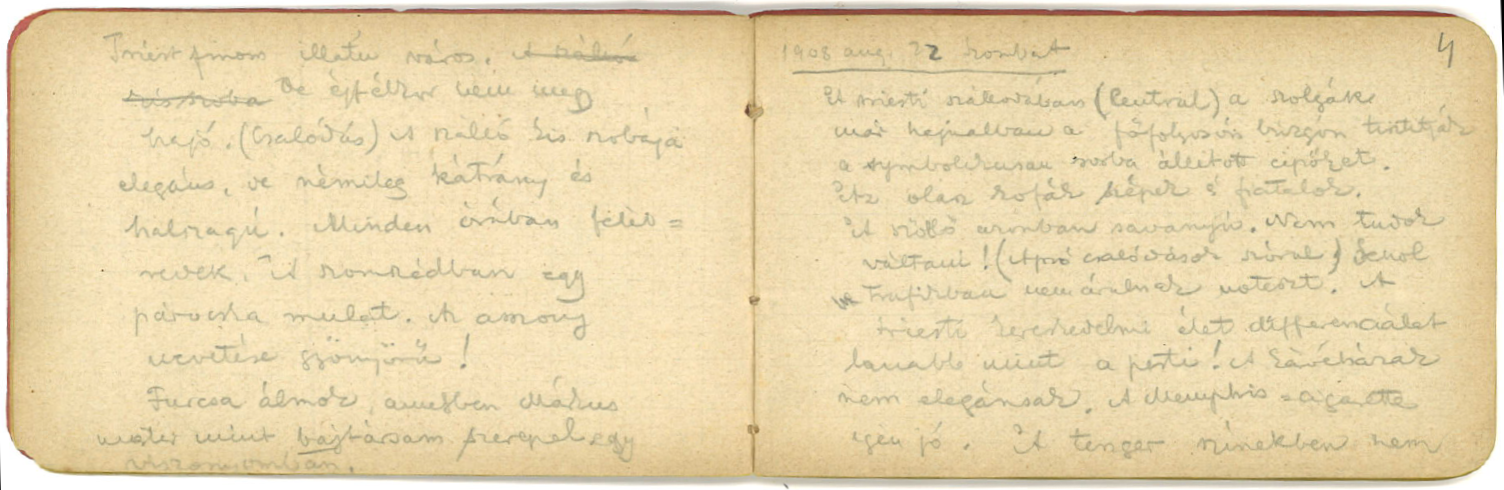 Triest finom illatu város. A szálló
kis szoba De éjfélkor nem megy
hajó. (Csalódás) A szálló kis szobája
elegáns, de némileg kátrány és
halszagú. Minden órában féléb=
redek. A szomszédban egy
párocska mulat. Az asszony
nevetése gyönyörű!
Furcsa álmok, amelyben Márkus
mester mint bajtársam szerepel egy
viszonyomban.
1908 aug. 22 szombat
4
A triesti szállodában (Central) a szolgák
már hajnalban a főfolyosón buzgón tisztítják
a symbolikusan sorba állított cipőket.
Az olasz kofák szépek s fiatalok.
A szőllő azonban savanyú. Nem tudok
váltani! (Apró csalódások sora!) Sehol
se Trafikban nem árulnak noteszt. A
triesti kereskedelmi élet differenciálat
lanabb mint a pesti! A kávéházak
nem elegánsak. A Memphis cigaretta
igen jó. A tenger színekben nem